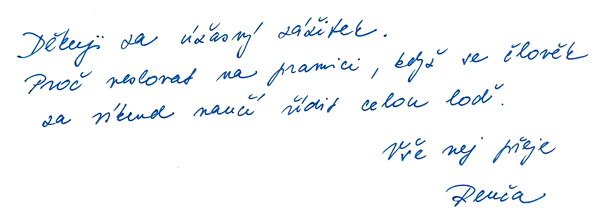 Děkuji za úžasný zážitek.
Proč veslovat na pramici, když se člověk
za víkend naučí řídit celou loď.
Vše nej přeje
Renča